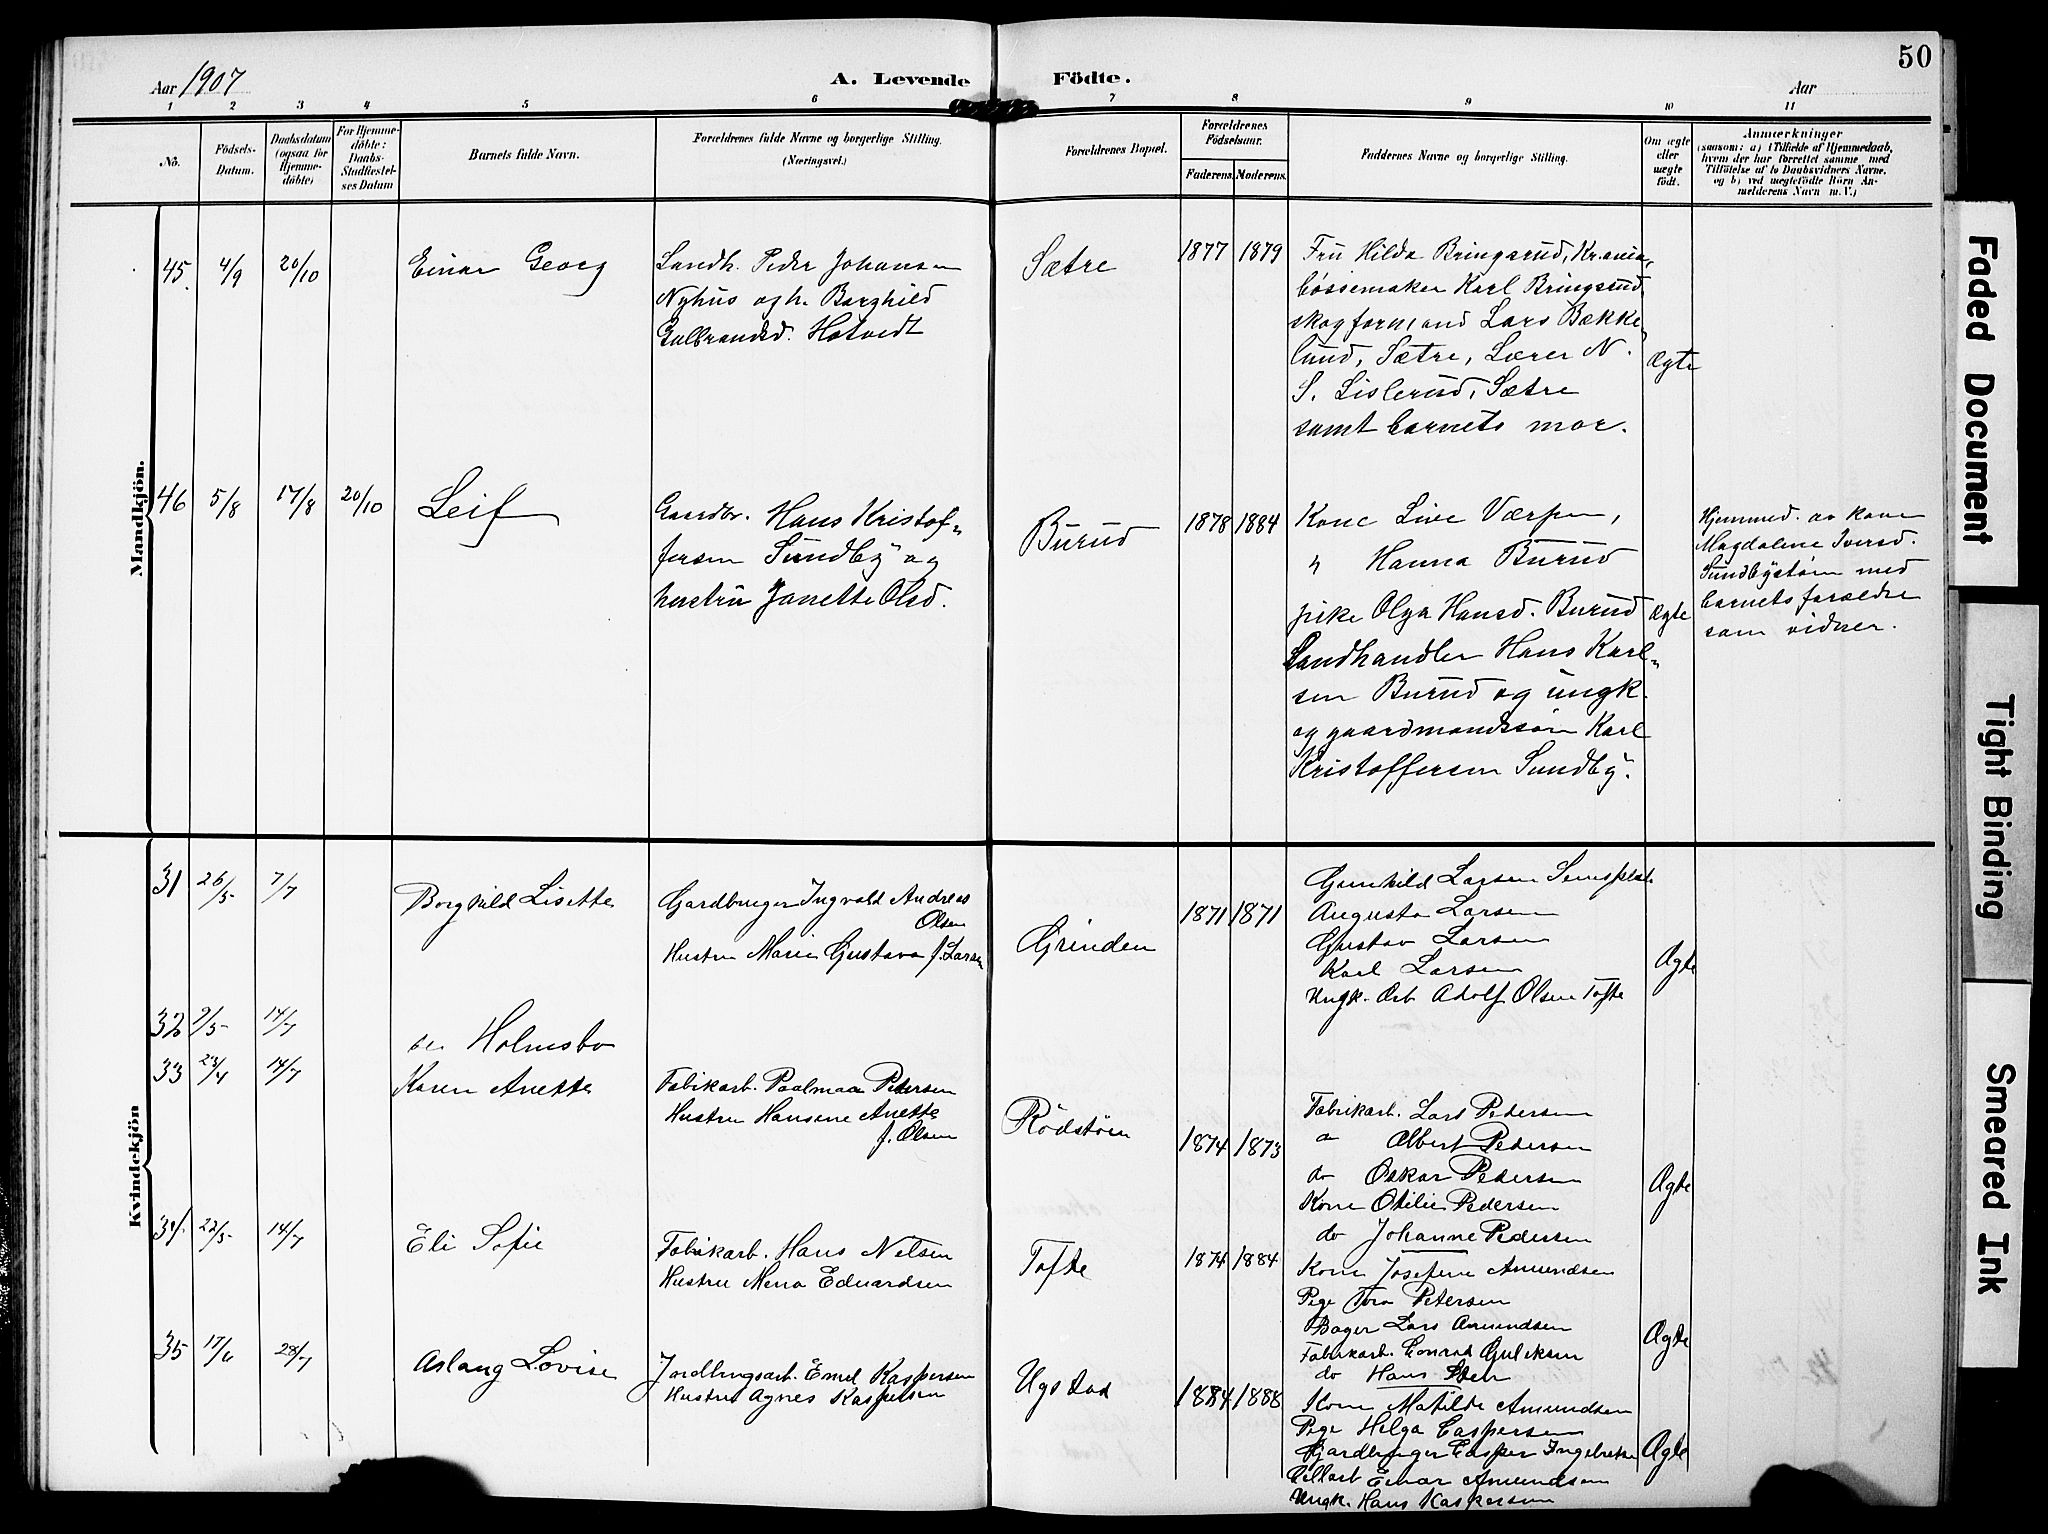 50
Aar 1907
A. Levende Födte.
Aar
1 2 3 4 5 6 7 8 9 10 11
No.
Födsels-
Datum.
Daabsdatum
(ogsaa for
Hjemme-
döbte)
For Hjemme-
döbte:
Daabs-
Stadfæstel-
ses Datum
Barnets fulde Navn.
Forældrenes fulde Navne og borgerlige Stilling.
(Næringsvei.)
Forældrenes Bopæl.
Forældrenes
Födselsaar.
Faderens. Moderens.
Faddernes Navne og borgerlige Stilling.
Om ægte
eller
uægte
födt.
Anmærkninger
(saasom: a) i Tilfælde af Hjemmedaab,
hvem der har forrettet samme med
Tilföielse af to Daabsvidners Navne,
og b) ved uægtefödte Börn An-
melderens Navn m. V.)
Mandkjön.
45. 4/9 20/10
Einar Georg
Landh. Peder Johansen
Nyhus og h. Borghild
Gulbrandsd. Hotvedt
Sætre
1877 1879
Fru Hilda Bringsrud, Kr.ania,
bøssemaker Karl Bringsrud,
skogformand Lars Bække-
lund, Sætre, Lærer N.
S. Lislerud, Sætre
samt barnets mor.
Ægte
46 5/8 17/8 20/10
Leif
Gaardbr. Hans Kristof-
fersen Sundby og
hustru Janette Olsd.
Burud
1878 1884
Kone Live Værpen,
" Hanna Burud
pike Olga Hansd. Burud
Landhandler Hans Karl-
sen Burud og ungk.
og gaardmandssøn Karl
Kristoffersen Sundby.
Ægte
Hjemmed. av kone
Magdalene Iversd.
Sundbystøen med
barnets forældre
som vidner.
Kvindekjön
31 26/5 7/7
Borghild Lisette
Gardbruger Ingvald Andreas
Olsen
Hustru Marie Gustava f. Larsen
Grinden
1871 1871
Gunhild Larsen
Augusta Larsen
Gustav Larsen
Karl Larsen
Ungk. Arb Adolf Olsen Tofte
Ægte
32 2/5 14/7
se Holmsbo
33 23/4 14/7
Karen Anette
Fabikarb. Paalmaa Petersen
Hustru Hansine Anette
f. Olsen
Rødstøen
1874 1873
Fabrikarb. Lars Pedersen
do Albert Pedersen
do Oskar Pedersen
Kone Otilie Pedersen
do Johanne Pedersen
Ægte
34 22/5 14/7
Eli Sofie
Fabrikarb. Hans Nilsen
Hustru Mena Eduardsen
Tofte
1874 1884
Kone Josefine Amundsen
Pige Tora Petersen
Bager Lars Amundsen
Fabrikarb. Conrad Guliksen
do Hans Steen
Ægte
35 17/6 28/7
Aslaug Lovise
Jordbrugsarb. Emil Kaspersen
Hustru Agnes Kaspersen
1884 1888
Kone Matilde Amundsen
Pige Helga Caspersen
Gjardbruger Casper Ingebretsen
Einar Amundsen
Ungk. Hans Kaspersen
Ægte
Faded Document
Tight Binding
Smeared Ink